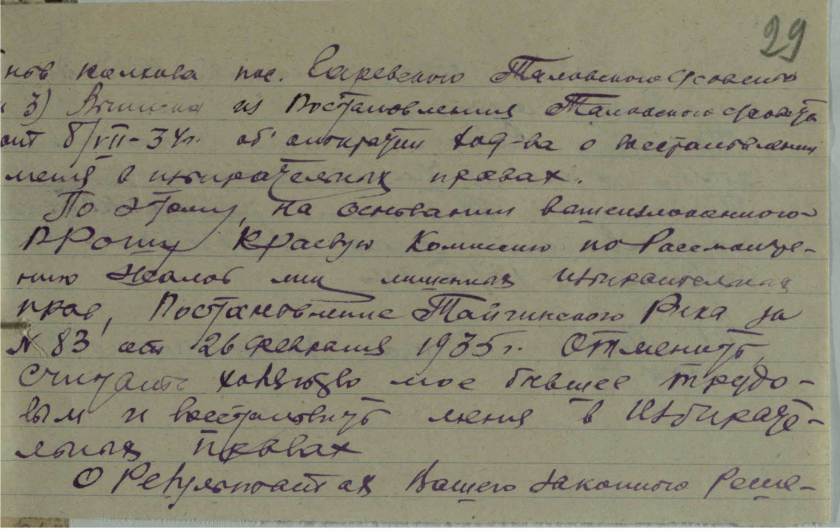 29
нов колхоза пос. Саревского Таловского с/совета
и 3) Выписка из Постановления Таловского с/совета
от 8/VII-34г. об отклонении ход-ва о восстановлении
меня в избирательных правах.
По этому, на основании вышеизложенного
прошу Краевую Комиссию по рассмотре-
нию жалоб лиц лишенных избирательных
прав, Постановление Тайгинского Рика за
N 83 от 26 февраля 1935г. отменить,
считать хозяйство мое бывшее трудо-
вым и восстановить меня в избирате-
льных правах
О Результатах Вашего законного реше-